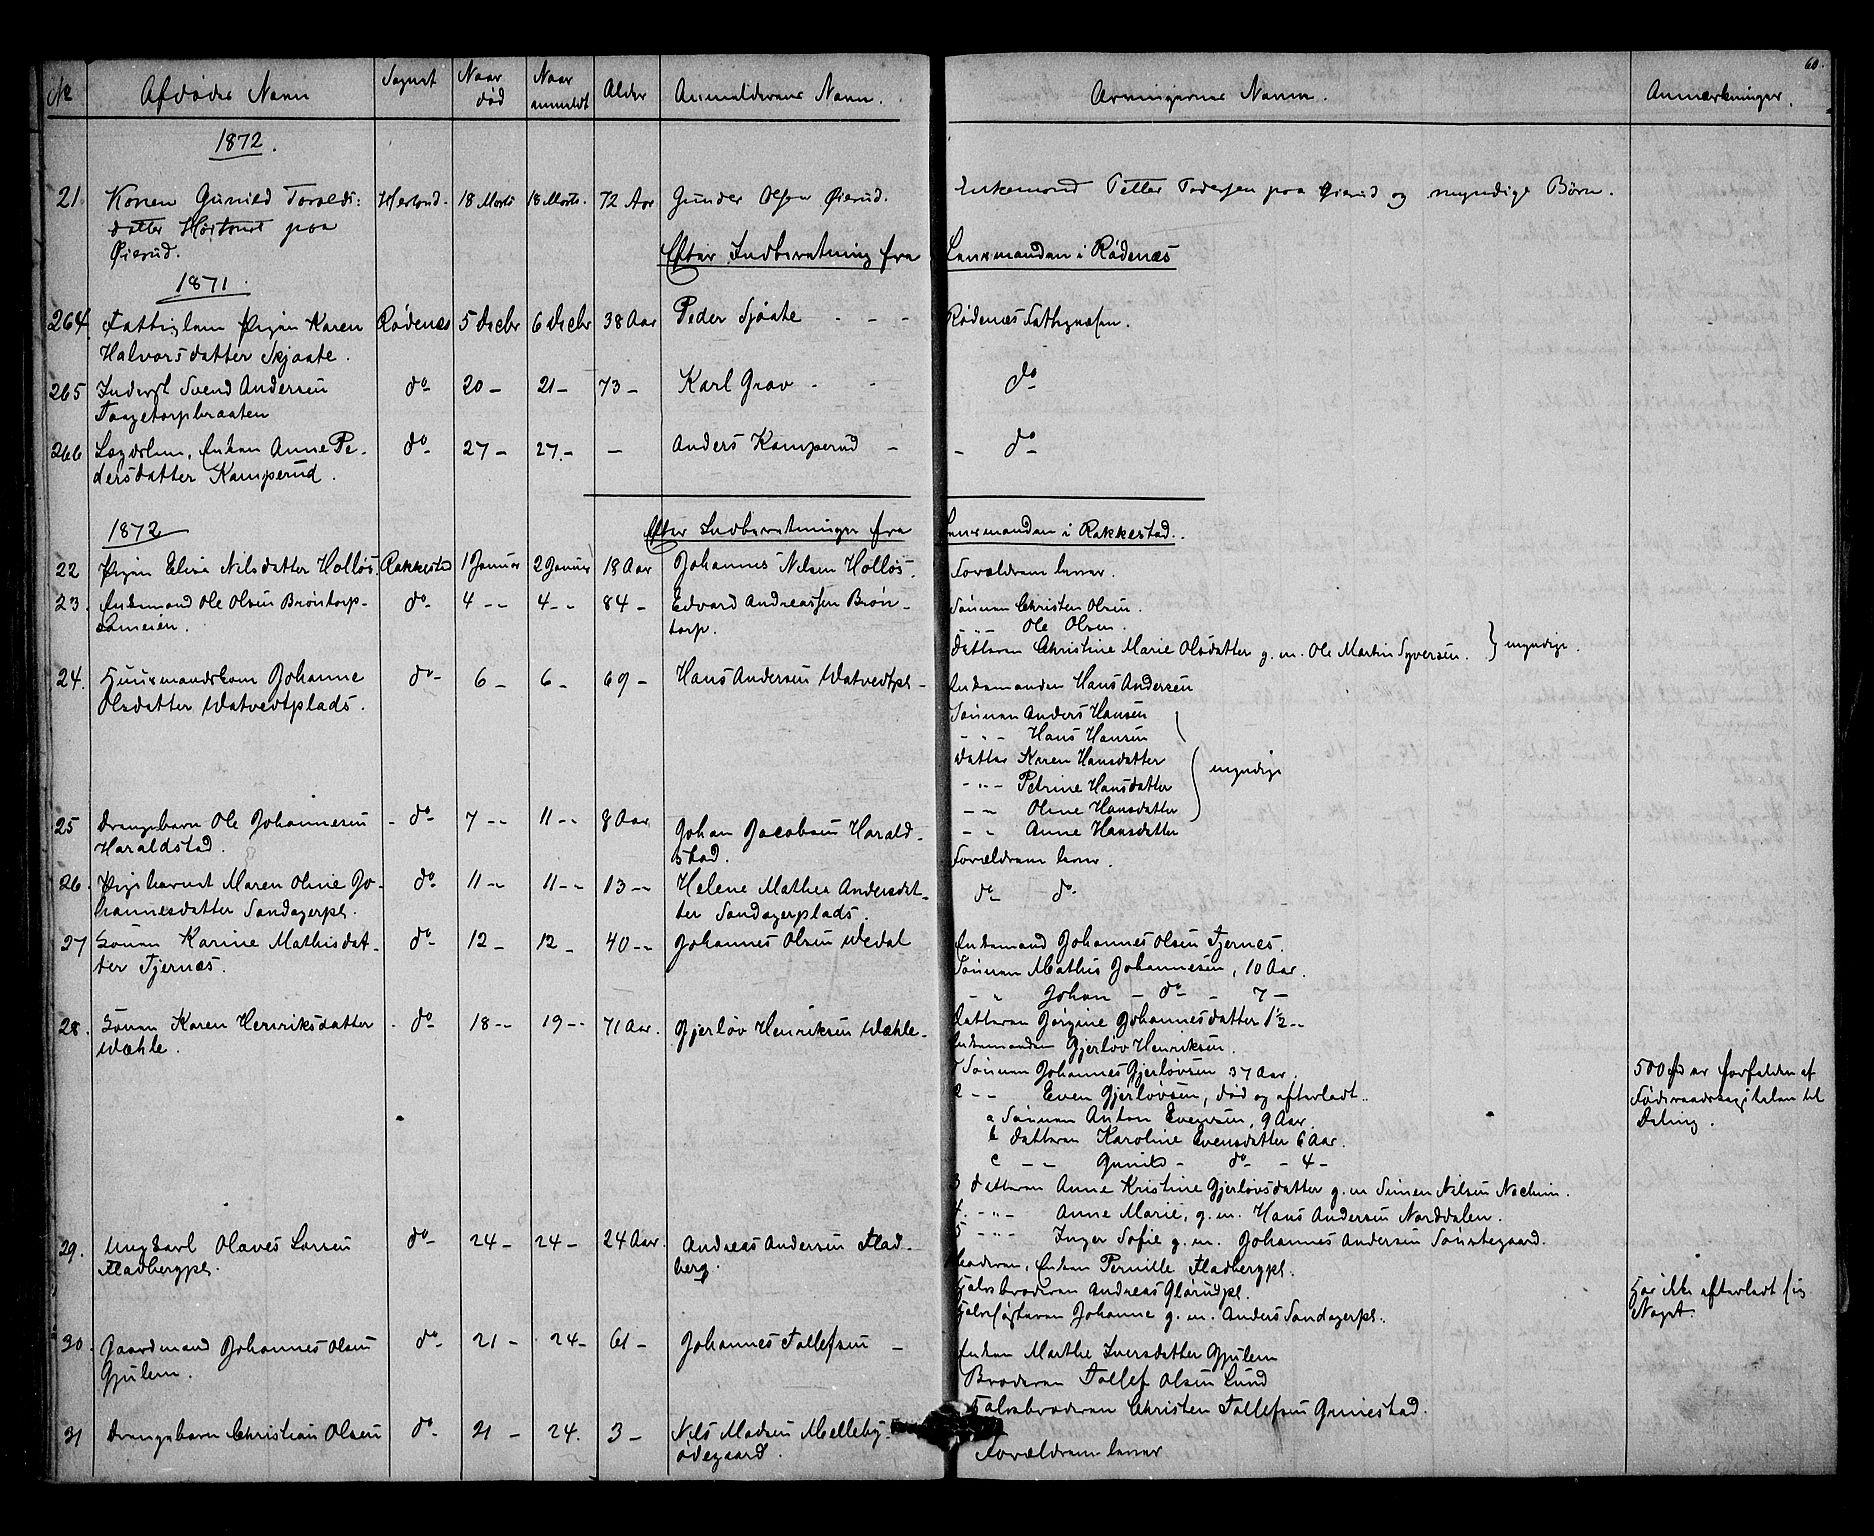 60.
No Afdødes Navn Sognet Naar død Naar anmeldt Alder Anmelderens Navn. Arvingernes Navne. Anmærkninger.
1872.
21 Konen Gunild Toralds: Herland. 18 Marts 18 Marts. 72 Aar Gunder Olsen Øierud. Enkemand Petter Pedersen paa Øierud og myndige Børn.
datter paa
Øierud.
Efter Indberetning fra Lensmanden i Rødenæs
1871.
264 Fattiglem Pigen Karen Rødenæs 5 Decbr 6 Decbr 38 Aar Peder Sjøate - - - Rødenæs Fattigvæsen.
Halvorsdatter Skjaate.
265 Inderst Svend Andersen do 20 - 21 - 73 - Karl Grav - - do
Taagetorpbraaten
266 Lægdslem, Enken Anne Pe- do 27 - 27. - - Anders Kamperud - - do
dersdatter Kamperud.
1872 Efter Indberetninger fra Lensmanden i Rakkestad.
22 Pigen Elise Nilsdatter Holløs. Rakkestad 1 Januar 2 Januar 18 Aar Johannes Nilsen Holløs. Forældrene lever.
23. Enkemand Ole Olsen Brøntorp- do 4 - - 4 - - 84 - Edvard Andreassen Brøn- Sønnen Christen Olsen.
eie. torp. - " - Ole Olsen.
Datteren Christine Marie Olsdatter g. m. Ole Martin Syversen. } myndige.
24. Huusmandskone Johanne do 6 - 6 - 69 - Hans Andersen Watvedtpl - Enkemanden Hans Andersen
Olsdatter Watvedtplads. Sønnen Anders Hansen
- " - Hans Hansen
Datter Karen Hansdatter
- " - Petrine Hansdatter } myndige
- - Oline Hansdatter
25 Drengebarn Ole Johannesen - do 7 - - 11 - - 8 Aar Johan Jacobsen Harald- - - Anne Hansdatter
Haraldstad. stad. Forældrene lever.
26. Pigebarnet Maren Oline Jo- do 11 - - 11 - - 13 - - Helene Mathea Andersdat- do do
hannesdatter Sandagerpl. ter Sandagerplads.
27 Konen Karine Mathisdat- do 12 - 12 - 40 - - Johannes Olsen Wedal Enkemand Johannes Olsen Tjernes.
ter Tjernæs. Sønnen Mathis Johannesen, 10 Aar.
- " Johan - do - 7 -
28. Konen Karen Henriksdatter - do 18 - - 19 - - 71 Aar. Gjerløv Henriksen Wæhle - Datteren Jørgine Johannesdatter 1½ - -
Wæhle. Enkemanden Gjerløv Henriksen.
1 Sønnen Johannes Gjerløvsen 37 Aar. 500 Spd er forfalden af
2 - - Even Gjerløvsen, død og efterladt. Føderaadskapitalen til
a Sønnen Anton Evensen, 9 Aar. Deling.
b Datteren Karoline Evensdatter 6 Aar.
c - - Gunild - do - 4 -
3 Datteren Anne Kristine Gjerløvsdatter g. m. Simen Nilsen
4. - " - Anne Marie, g. m. Hans Andersen Norddalen.
5 - " - Inger Sofie g. m. Johannes Andersen
29. Ungkarl Olaves Larsen do 24 - 24 - 24 Aar. Andreas Andersen Flad- Moderen, Enken Pernille Fladbergpl.
Fladbergpl. berg. Halvbroderen Andreas Glørudpl. Har ikke efterladt sig
Halvsøsteren Johanne g. m. Anders Sandagerpl. Noget.
30. Gaardmand Johannes Olsen do 21 - 24 - 61 - Johannes Tollefsen - Enken Marthe Iversdatter Gjulem
Gjulem. Broderen Tollef Olsen Lund
Halvbroderen Christen Tollefsen Gunestad.
31 Drengebarn Christian Olsen do 21 - 24. 3 - Nils Madsen Melleby- Forældrene lever
ødegaard.